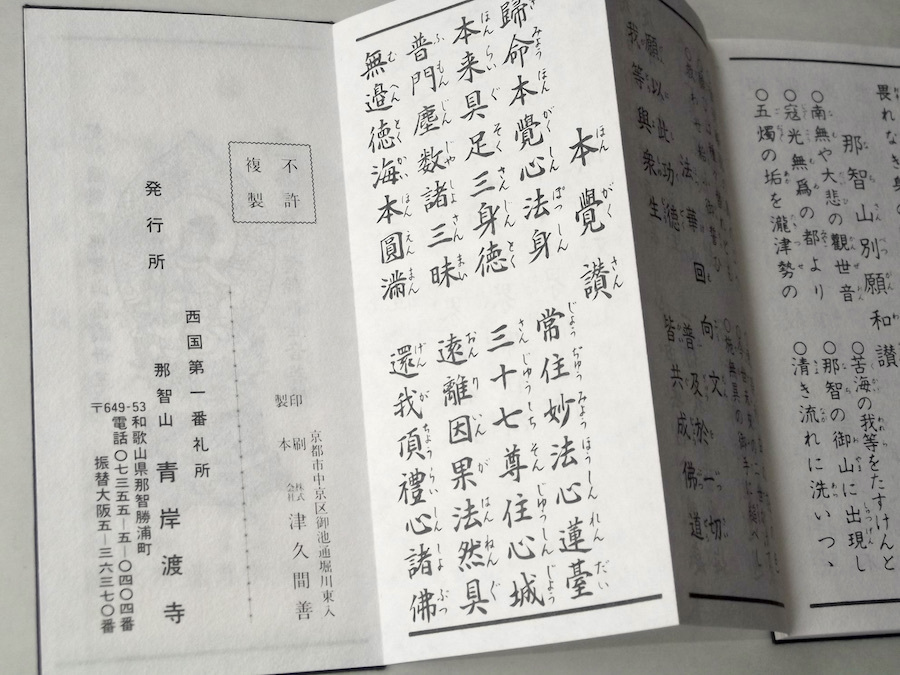 畏れなき
那智山別願和讃
○南無や大悲の觀世音
○苦海の我等をたすけんと
○寂光無爲の都より
○那智の御山に出現し
○五燭の垢を瀧津勢の
○清き流れに洗いつゝ
法華回向文
願以此功徳 普及於一切
我等與衆生 皆共成佛道
本覺讃
歸命本覺心法身 常住妙法心蓮臺
本来具足三身徳 三十七尊住心城
普門塵数諸三昧 遠離因果法然具
無邉徳海本圓満 還我頂禮心諸佛
不許
複製
京都市中京区御池通堀川東入
印刷 株式会社 津久間善
製本
西国第一番礼所
発行所 那智山 青岸渡寺
〒649-53 和歌山県那智勝浦町
電話〇七三五五-五-〇四〇四番
振替大阪五-三六三七〇番